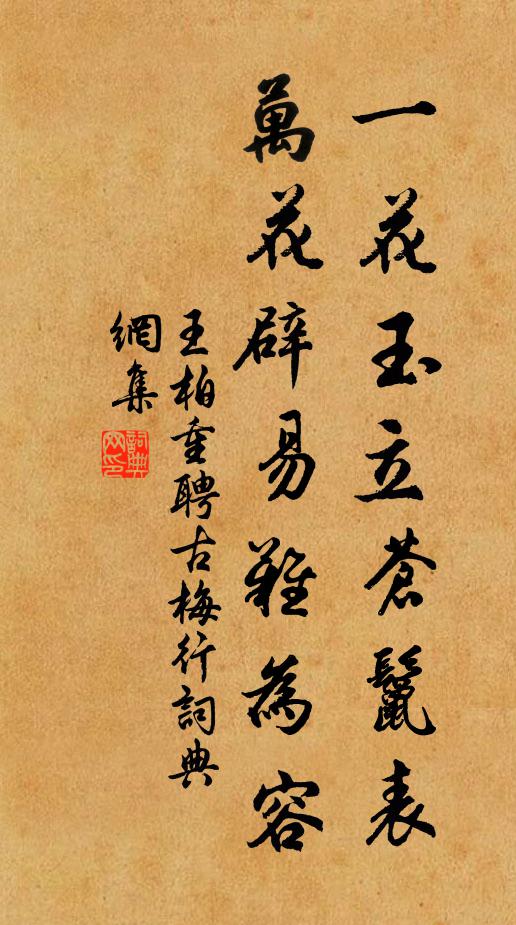 一花玉立蒼鬣表
萬花辟易難為容
王柏重聘古梅行詞典
網集
詞典
网印